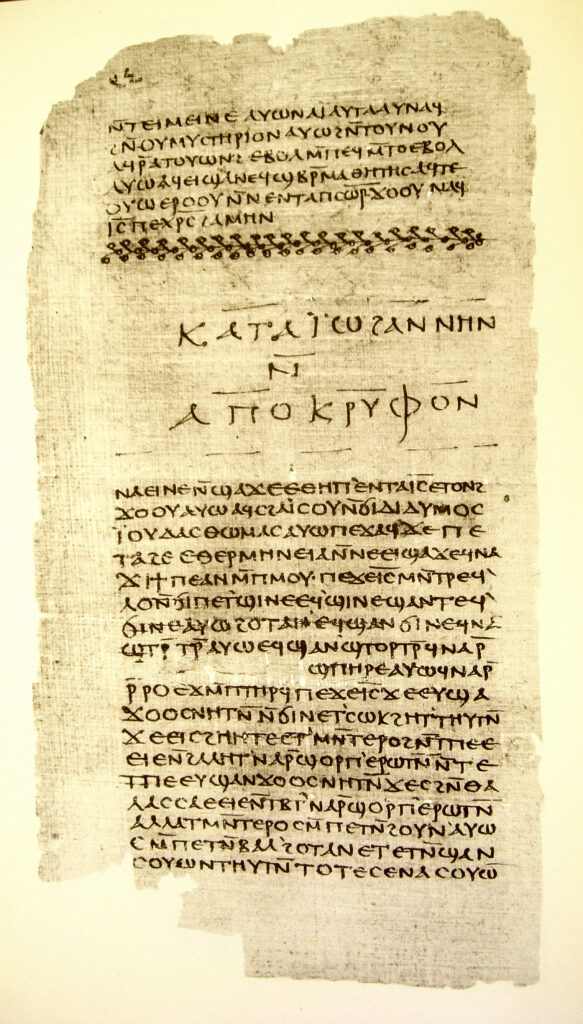 ⲛ̄ⲧⲉⲓⲙⲉⲓⲛⲉ ⲁⲩⲱ ⲛⲁⲓ̈ ⲁⲩⲧⲁⲁⲩ ⲛⲁϥ
ϩⲛ̄ⲟⲩⲙⲩⲥⲧⲏⲣⲓⲟⲛ ⲁⲩⲱ ϩⲛ̄ⲧⲟⲩⲛⲟⲩ
ⲁϥⲣ̄ⲁⲧⲟⲩⲱⲛϩ ⲉⲃⲟⲗ ⲙ̄ⲡⲉϥⲙ̄ⲧⲟ ⲉⲃⲟⲗ
ⲁⲩⲱ ⲁϥⲉⲓ ϣⲁⲛⲉϥϣⲃⲣ̄ⲙⲁⲑⲏⲧⲏⲥ ⲁϥⲧⲉ
ⲟⲩⲱ ⲉⲣⲟⲟⲩ ⲛ̄ⲛⲉⲛⲧⲁⲡⲥⲱ̄ⲣ̄ ϫⲟⲟⲩ ⲛⲁϥ
ⲓ̄ⲥ̄ ⲡⲉⲭ̄ⲣ̄ⲥ̄ ϩⲁⲙⲏⲛ
ⲕⲁⲧⲁ ⲓ̈ⲱϩⲁⲛⲛⲏⲛ
ⲛ̄
ⲁⲡⲟⲕⲣⲩⲫⲟⲛ
ⲛⲁⲉⲓ ⲛⲉ ⲛ̄ϣⲁϫⲉ ⲉⲑⲏⲡ ⲉⲛⲧⲁⲓ̄ⲥ̄ ⲉⲧⲟⲛϩ
ϫⲟⲟⲩ ⲁⲩⲱ ⲁϥⲥϩⲁⲓ̈ⲥⲟⲩ ⲛ̄ϭⲓ ⲇⲓⲇⲩⲙⲟⲥ
ⲓ̈ⲟⲩⲇⲁⲥ ⲑⲱⲙⲁⲥ ⲁⲩⲱ ⲡⲉϫⲁϥ ϫⲉ ⲡⲉ
ⲧⲁϩⲉ ⲉⲑⲉⲣⲙⲏⲛⲉⲓⲁ ⲛ̄ⲛⲉⲉⲓϣⲁϫⲉ ϥⲛⲁ
ϫⲓ ϯⲡⲉ ⲁⲛ ⲙ̄ⲡⲙⲟⲩ· ⲡⲉϫⲉ ⲓ̄ⲥ̄ ⲙⲛ̄ⲧⲣⲉϥ
ⲗⲟ ⲛ̄ϭⲓ ⲡⲉⲧϣⲓⲛⲉ ⲉϥϣⲓⲛⲉ ϣⲁⲛⲧⲉϥ
ϭⲓⲛⲉ ⲁⲩⲱ ϩⲟⲧⲁⲛ ⲉϥϣⲁⲛϭⲓⲛⲉ ϥⲛⲁ
ϣⲧⲣ̄ⲧⲣ̄ ⲁⲩⲱ ⲉϥϣⲁⲛϣⲧⲟⲣⲧⲣ̄ ϥⲛⲁⲣ̄
ϣⲡⲏⲣⲉ ⲁⲩⲱ ϥⲛⲁⲣ̄
ⲣ̄ⲣⲟ ⲉϫⲙ̄ ⲡⲧⲏⲣϥ ⲡⲉϫⲉ ⲓ̄ⲥ̄ ϫⲉ ⲉⲩϣⲁ
ϫⲟⲟⲥ ⲛⲏⲧⲛ̄ ⲛ̄ϭⲓ ⲛⲉⲧⲥⲱⲕ ϩⲏⲧ ⲧⲏⲩⲧⲛ̄
ϫⲉ ⲉⲓⲥϩⲏⲏⲧⲉ ⲉⲧⲙⲛ̄ⲧⲉⲣⲟ ϩⲛ̄ ⲧⲡⲉ ⲉ
ⲉⲓⲉ ⲛ̄ϩⲁⲗⲏⲧ ⲛⲁⲣ̄ ϣⲟⲣⲡ ⲉⲣⲱⲧⲛ̄ ⲛ̄ⲧⲉ
ⲧⲡⲉ ⲉⲩϣⲁⲛϫⲟⲟⲥ ⲛⲏⲧⲛ̄ ϫⲉ ⲥϩⲛ̄ ⲑⲁ
ⲗⲁⲥⲥⲁ ⲉⲉⲓⲉ ⲛ̄ⲧⲃⲧ ⲛⲁⲣ̄ ϣⲟⲣⲡ ⲉⲣⲱⲧⲛ̄
ⲁⲗⲗⲁ ⲧⲙⲛ̄ⲧⲉⲣⲟ ⲥⲙ̄ⲡⲉⲧⲛ̄ϩⲟⲩⲛ ⲁⲩⲱ
ⲥⲙ̄ⲡⲉⲧⲛ̄ⲃⲁⲗ ϩⲟⲧⲁⲛ ⲉⲧⲉⲧⲛ̄ϣⲁⲛ
ⲥⲟⲩⲱⲛ ⲧⲏⲩⲧⲛ̄ ⲧⲟⲧⲉ ⲥⲉⲛⲁⲥⲟⲩⲱ